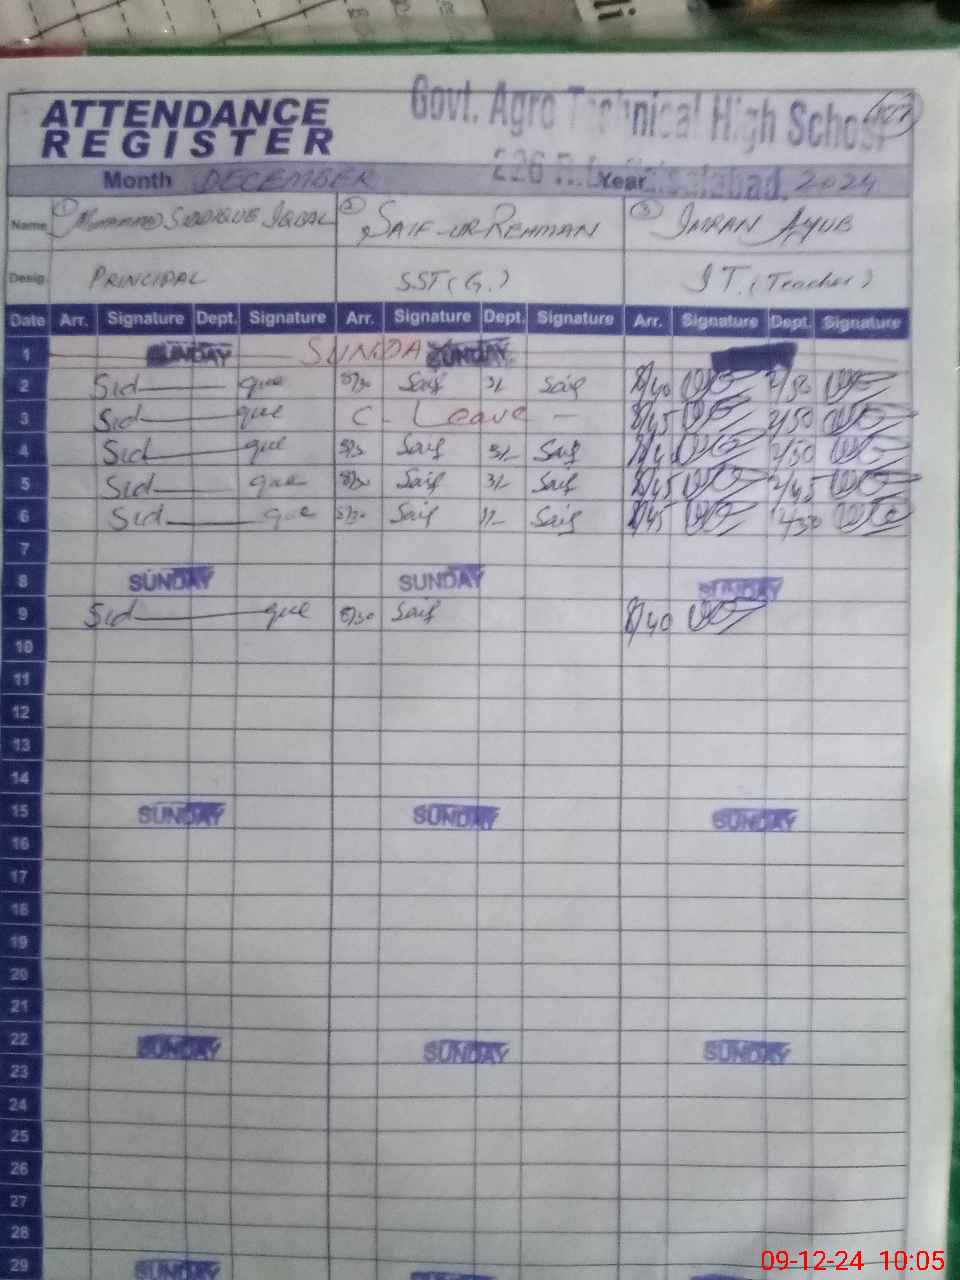 Govt. Agro Technical High School
ATTENDANCE
REGISTER
226 R.B. Faisalabad.
Month DECEMBER Year 2024
Name ① Muhammad Siddique Iqbal ② SAIF-UR-REHMAN ③ IMRAN AYUB
Desig. PRINCIPAL SST (G.) I T. (Teacher)
Date Arr. Signature Dept. Signature Arr. Signature Dept. Signature Arr. Signature Dept. Signature
1 SUNDAY SUNDA SUNDAY
2 Sid que 8/30 Saif 3/- Saif 8/40 2/50
3 Sid que C - Leave - 8/45 2/50
4 Sid que Saif 3/- Saif 2/50
5 Sid que 8/30 Saif 3/- Saif 8/45 2/45
6 Sid que Saif Saif 8/45 2/30
7
8 SUNDAY SUNDAY SUNDAY
9 Sid que 8/30 Saif 8/40
10
11
12
13
14
15 SUNDAY SUNDAY SUNDAY
16
17
18
19
20
21
22 SUNDAY SUNDAY SUNDAY
23
24
25
26
27
28
29 SUNDAY SUNDAY SUNDAY
09-12-24 10:05